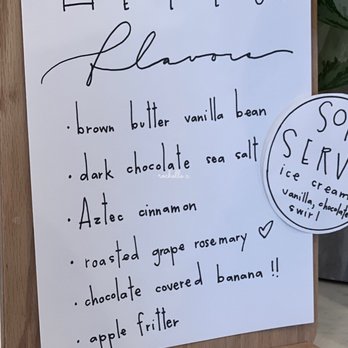 flavors
• brown butter vanilla bean
• dark chocolate sea salt
rochelle s.
• Aztec cinnamon
• roasted grape rosemary ♡
• chocolate covered banana !!
• apple fritter
SO
SERV
ice cream
vanilla, chocolate
swirl